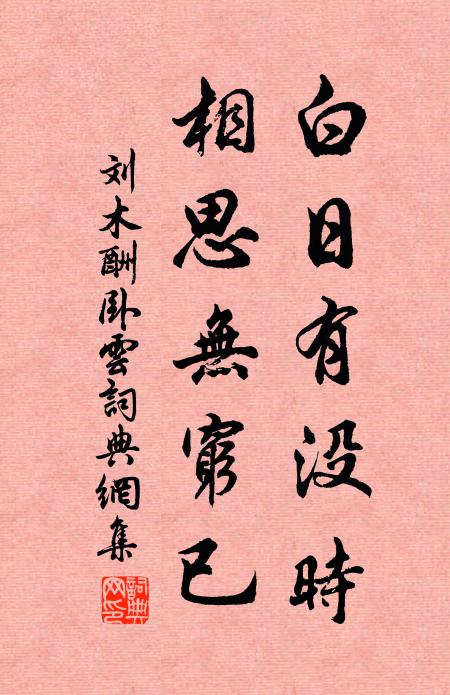 白日有没時
相思無窮已
刘木酬卧雲詞典網集
詞典
网印